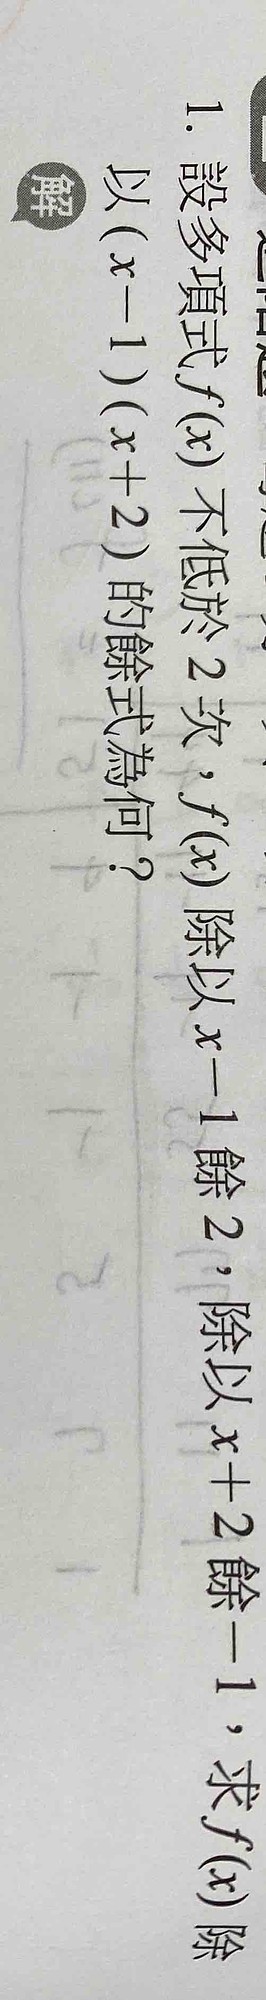 1. 設多項式 f(x) 不低於 2 次,f(x) 除以 x−1 餘 2,除以 x+2 餘 −1,求 f(x) 除
以 (x−1)(x+2) 的餘式為何?
解